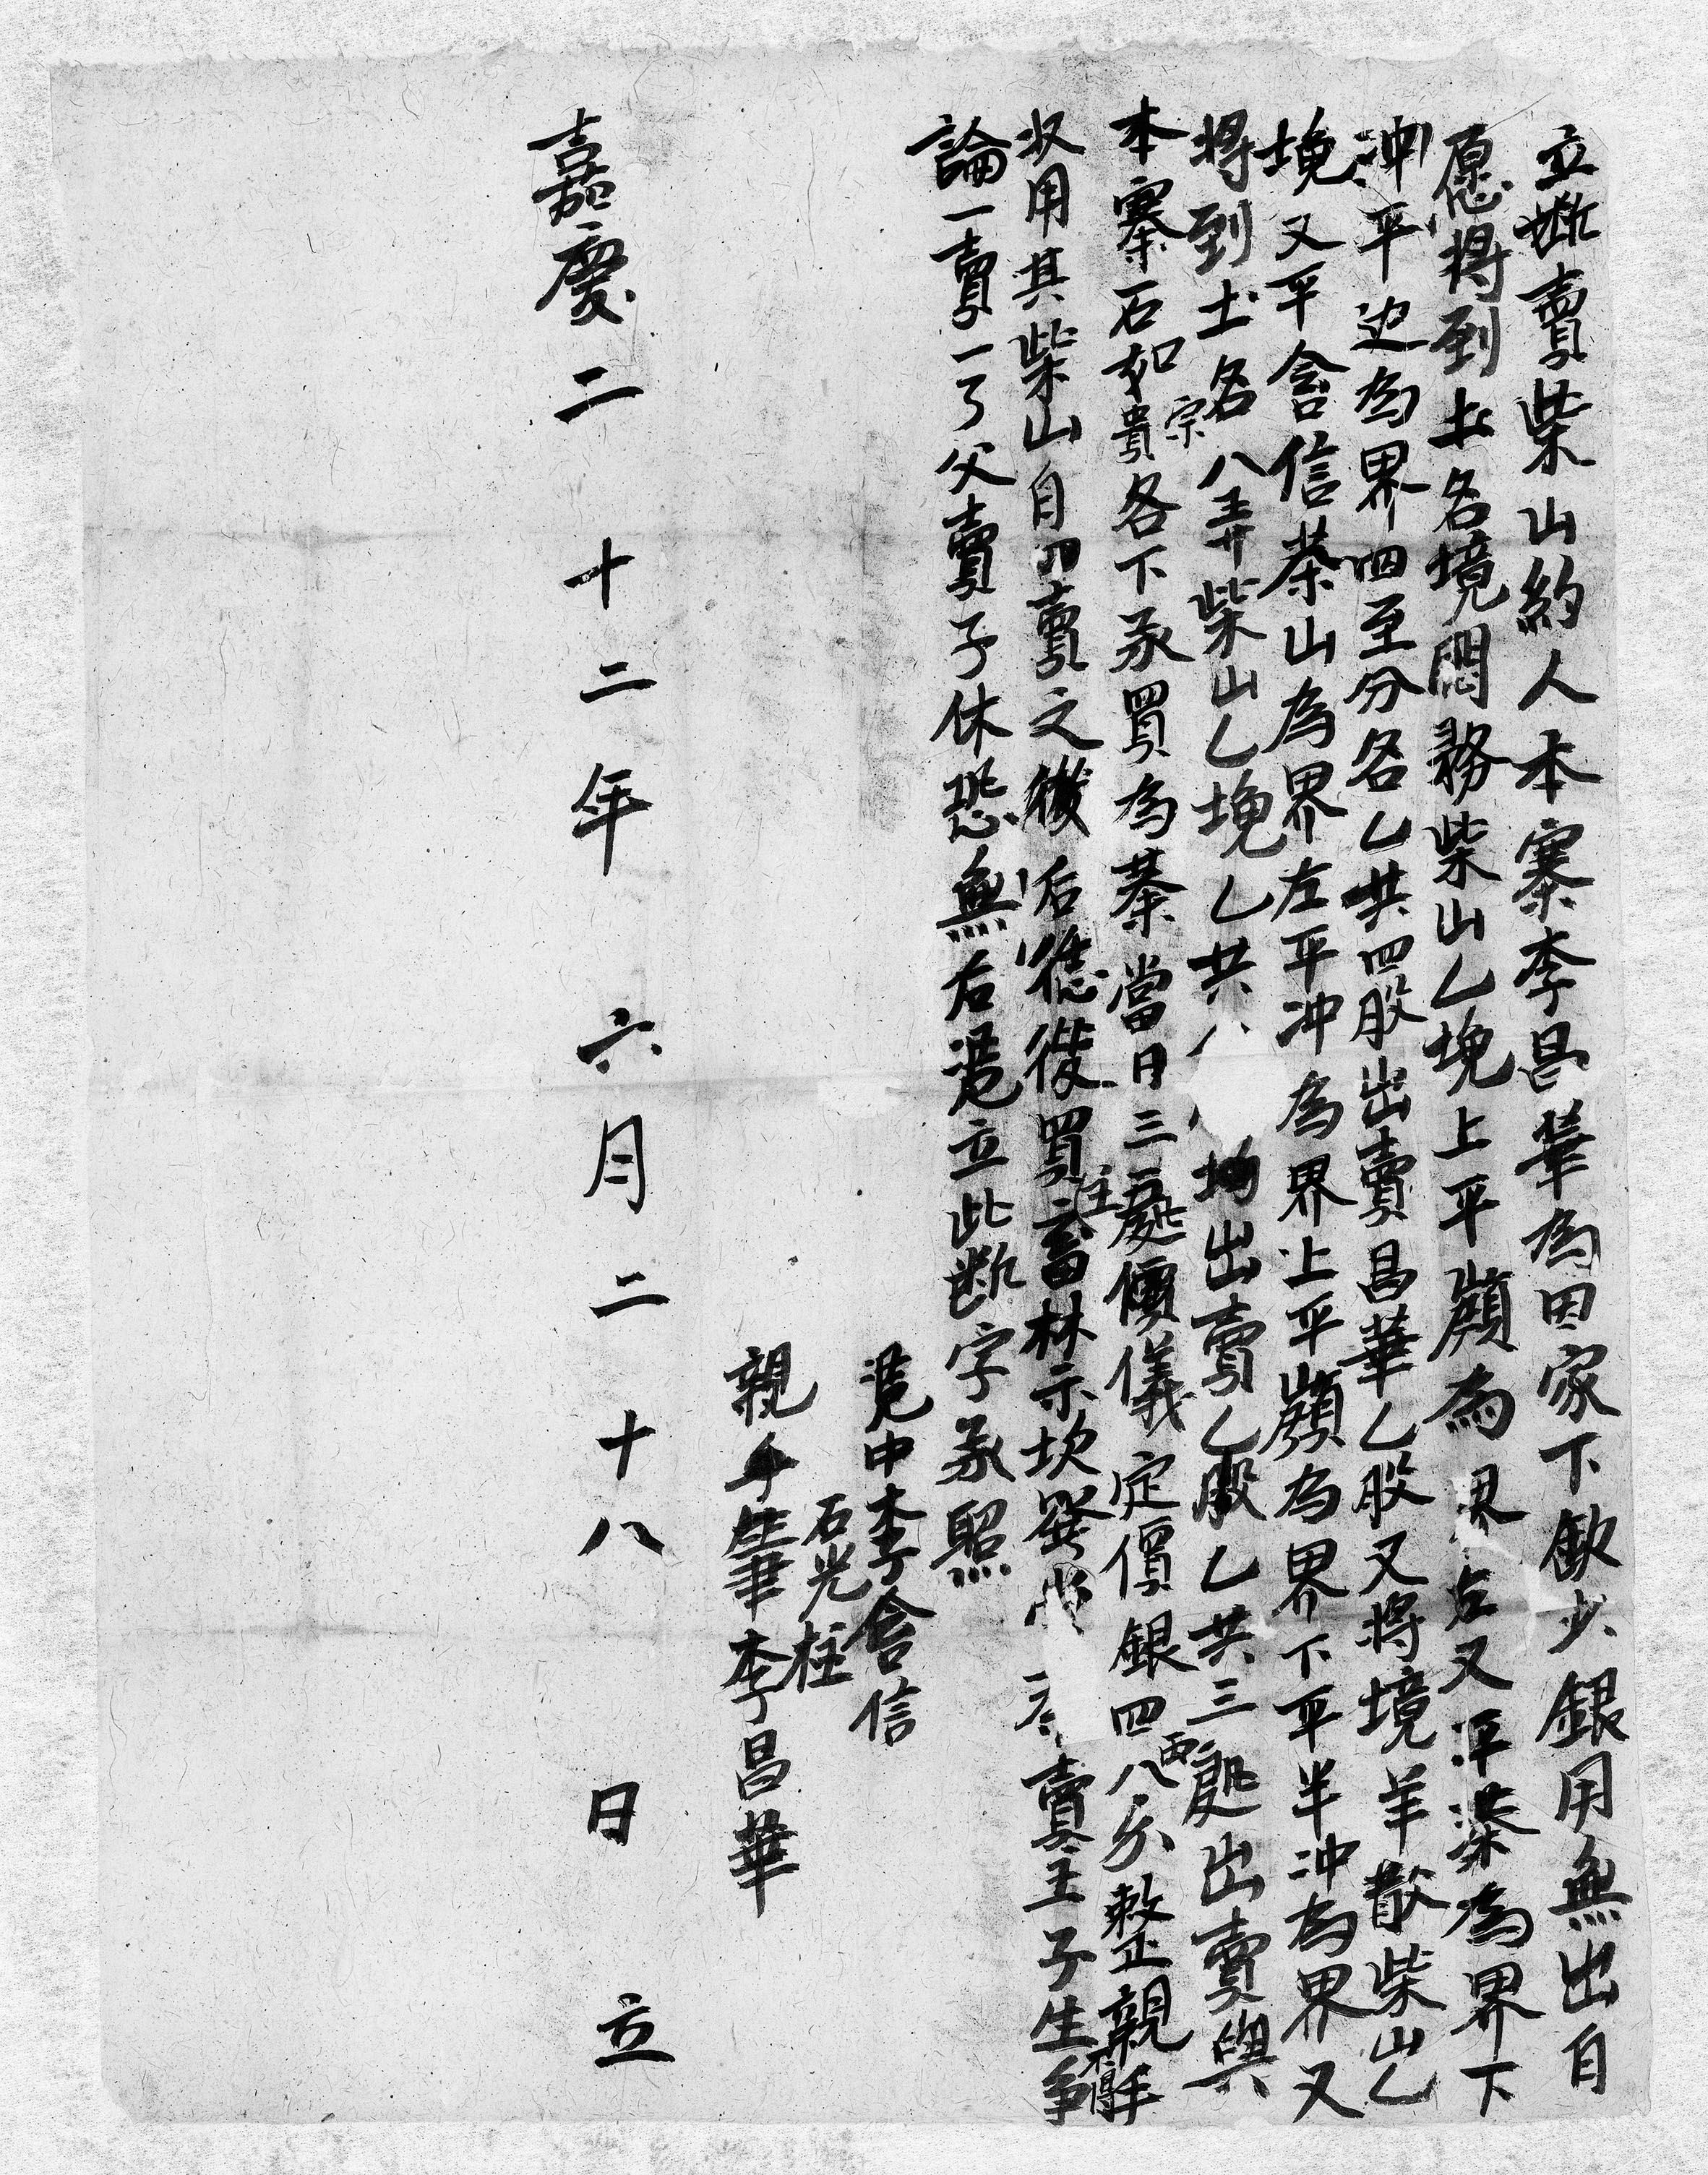 立斷賣柴山約人本寨李昌華為因家下欽少銀用無出自
愿將到土名境悶務柴山乙塊上平嶺為界右又平渠為界下
沖平边為界四至分各乙共四股出賣昌華乙股又將境羊散柴山乙
塊又平含信茶山為界左平冲為界上平嶺為界下平半冲為界又
將到土名八弄柴山乙塊乙共 均出賣乙股乙共三處出賣與
本寨石如宗貴各下承買為業當日三主處價儀定價銀四両八分整親手
收用其柴山自賣之後后從買主畜林示坎發 賣主子生不得爭
論一賣一了父賣子休恐無右憑立此断字承照
憑中李含信
石光柱
親手筆李昌華
嘉慶二十二年六月二十八日立